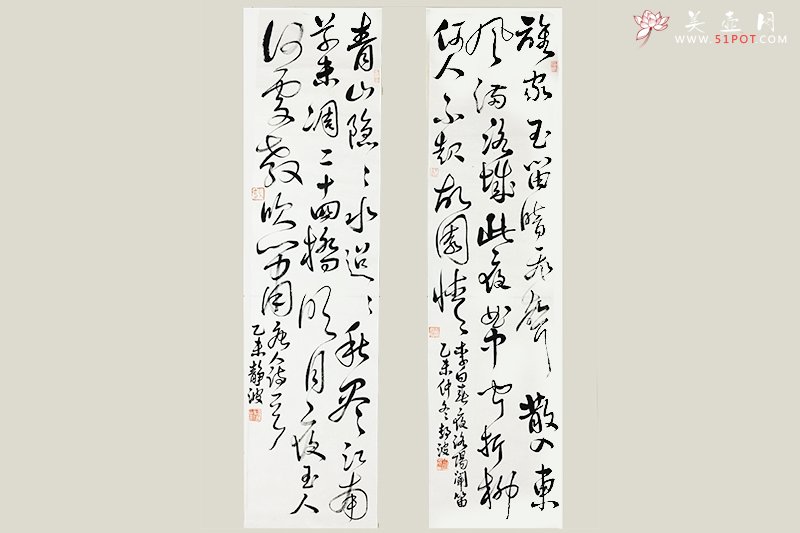 美壶网
WWW.51POT.COM
誰家玉笛暗飛聲散入東
風滿洛城此夜曲中聞折柳
何人不起故園情
李白春夜洛陽聞笛
乙未仲冬静波
青山隐〻水迢〻秋尽江南
草未凋二十四橋明月夜玉人
何處教吹簫
唐人詩一首
乙未静波